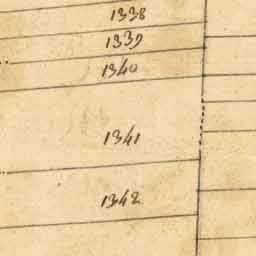 1338
1339
1340
1341
1342